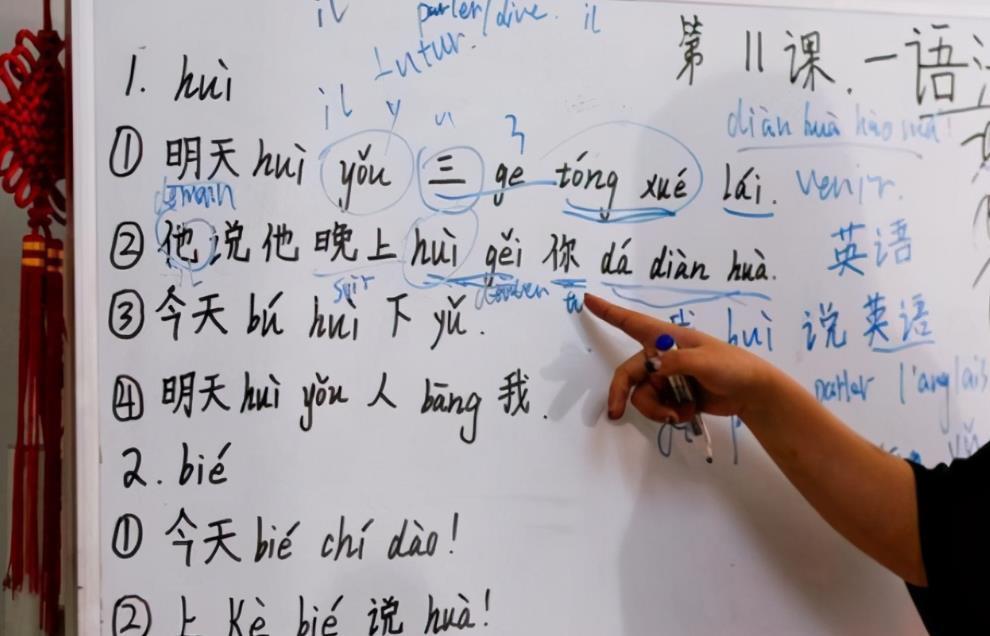 il parler/dire. il
Futur.
第11课.一语
1. huì
il y
diàn huà hǎo
① 明天 huì yǒu 三 ge tóng xué lái. venir.
demain
② 他说他晚上 huì gěi 你 dá diàn huà. 英语
soir tu
③ 今天 bú huì 下 yǔ. huì 说英语
④ 明天 huì yǒu 人 bāng 我. parler l'anglais
2. bié
① 今天 bié chí dào!
② 上 Kè bié 说 huà!